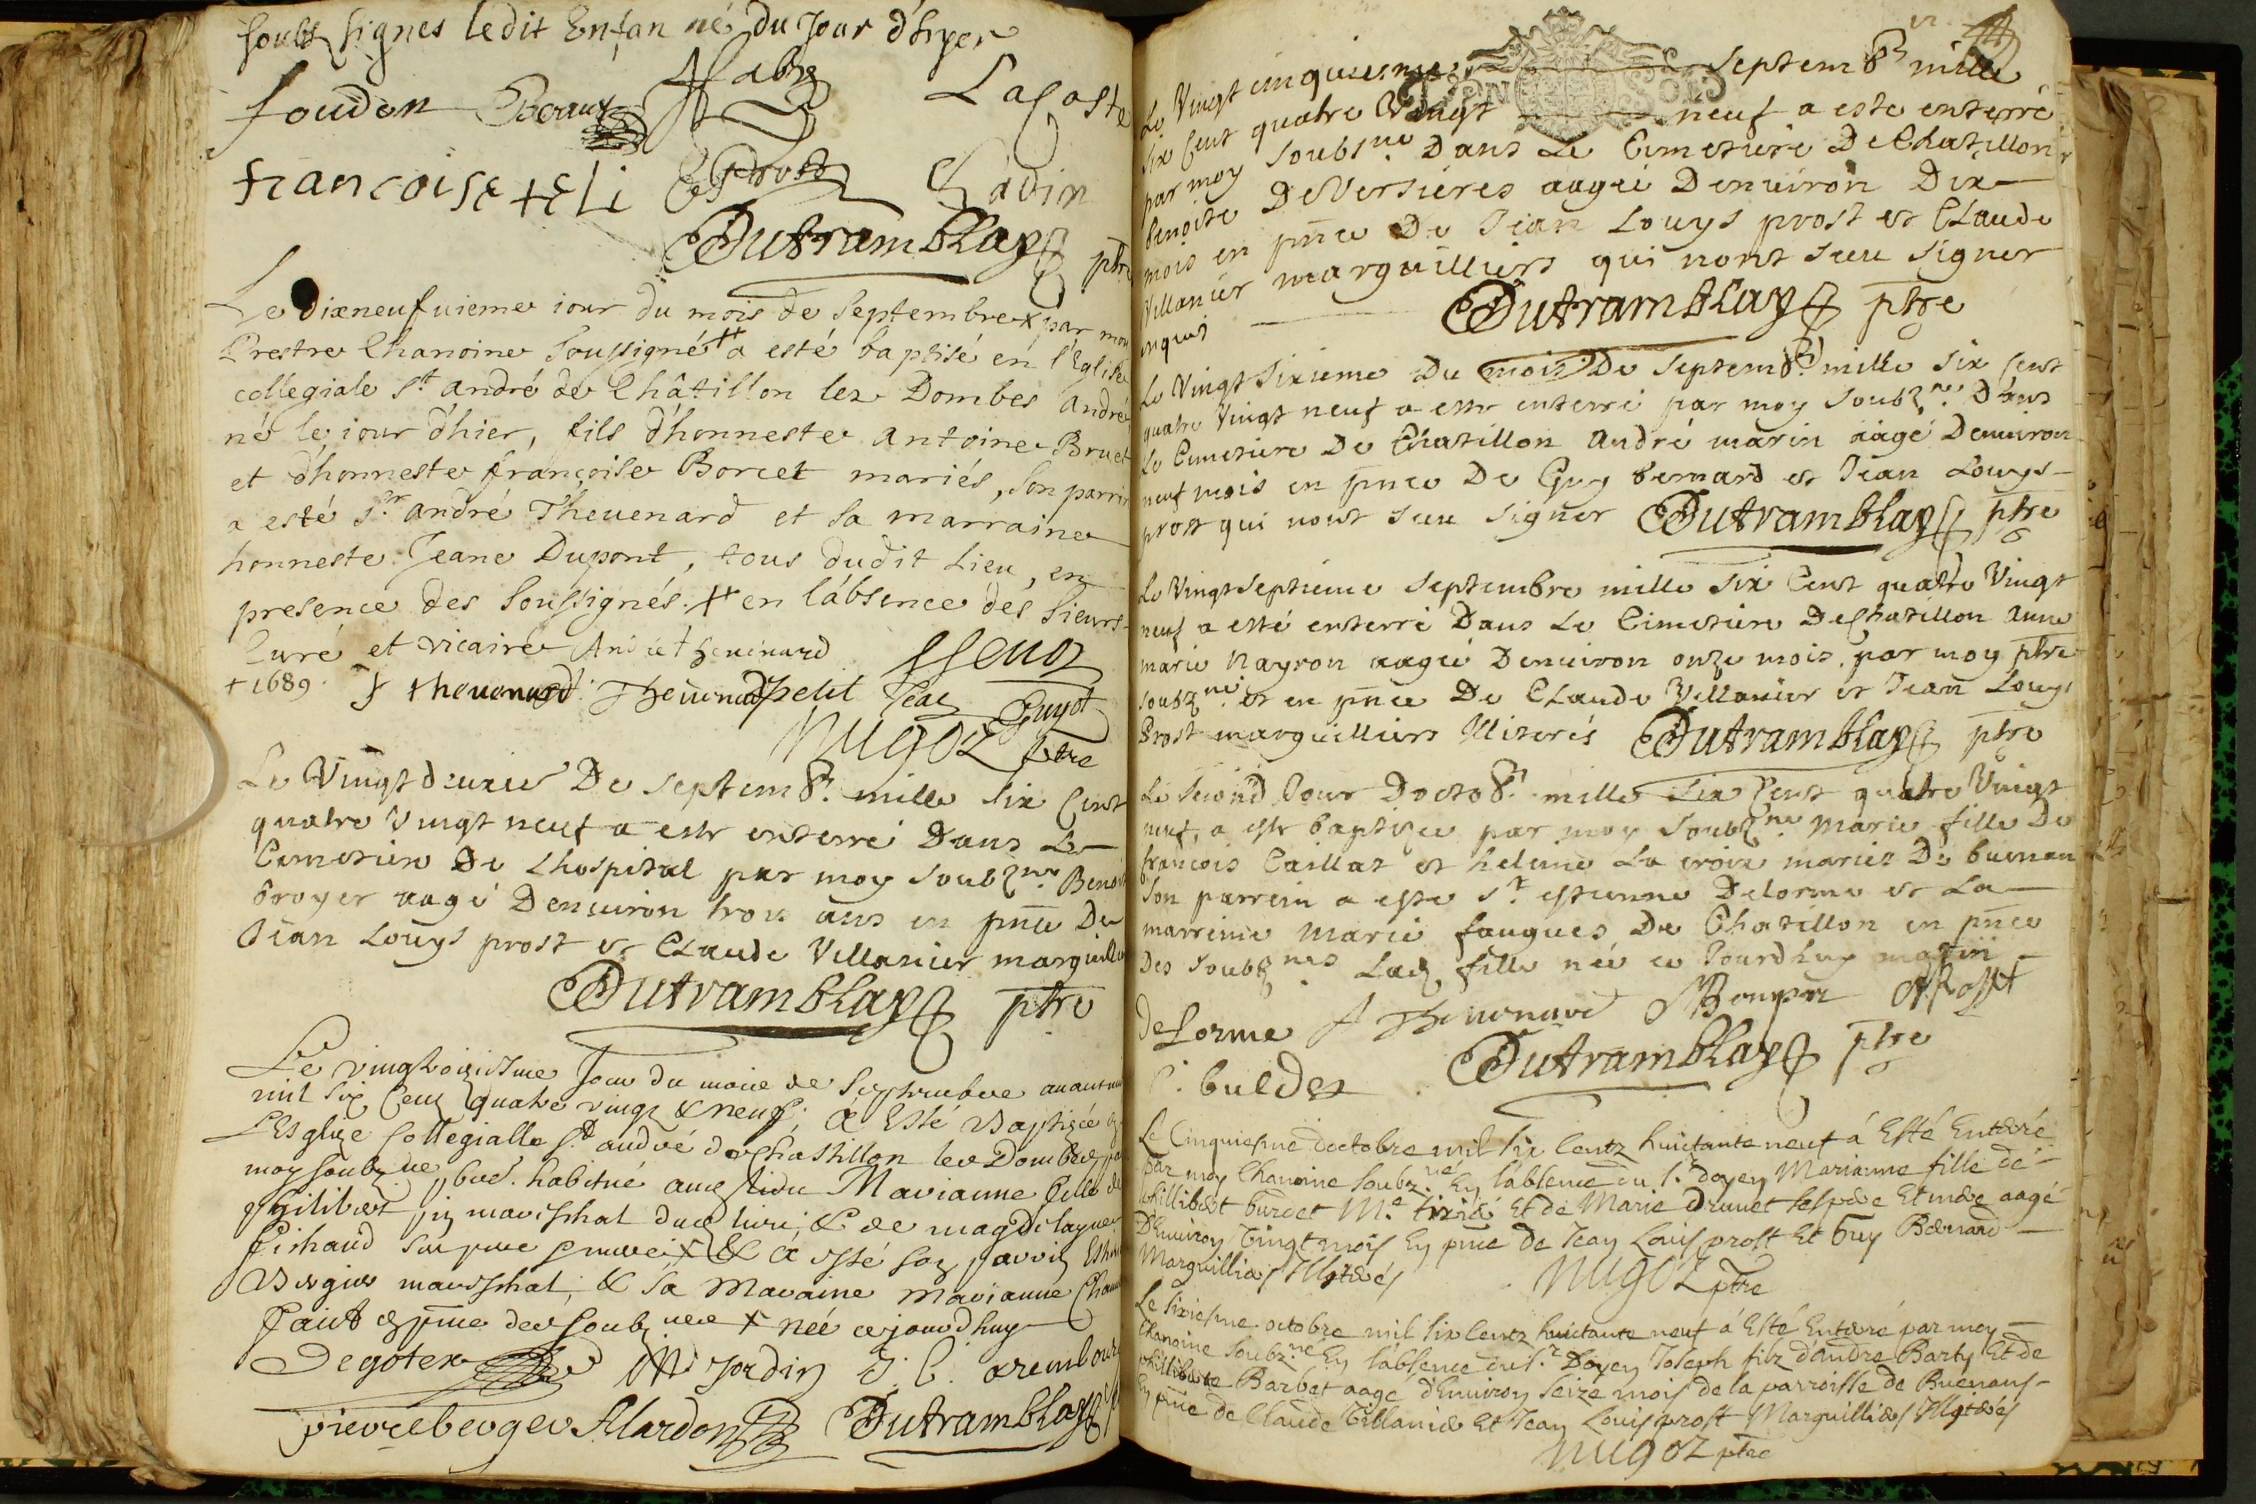 soubz signes ledit Enfan né du Jour d'hyer
foudon Beraud Lacoste
francoise + eli Prost Gavin
Dutramblay ptre
Le dixneufvieme iour du mois de septembre + par moy
Prestre Chanoine soussigné ++ a esté baptisé en l'Eglise
collegiale st andré de Châtillon lez Dombes andré
né le iour d'hier, fils d'honneste antoine Bruet
et d'honneste françoise Borcet mariés, son parrin
a esté sr andré Thevenard et sa marraine
honneste Jeane Dupont, tous dudit Lieu, en
presence des soussignés. ++ en l'absence des sieurs
Curé et vicaire André thevenard
+ 1689. J thevenard. Thevenard petit Jean Guyot
Nugoz ptre
Le Vingt deuxie De septem8r. mille six Cent
quatre Vingt neuf a este enterré Dans Le
Cimetiere De Lhospital par moy soubzne Benoit
broyer aagé Denuiron trois ans en pnce De
Jean Louys prost et Claude Villanier marguillier
Dutramblay ptre
Le vingtroisiesme Jour du mois de septembre
mil six Cens quatre vingt & neuf, a Esté Baptisée
L'Esglize Collegialle st andré de Chastillon les Dombes
moy soubzne habitué Marianne fille de
philibert mareschal dud lieu, & de magdelayne
Esté son parrin
mareschal, & sa Maraine Marianne
faict en pnce des soubznes + née ce jourdhuy
Degoter M Jordin J. C.
pierre berger Alardon Dutramblay
Le Vingt cinquiesme septem8r mille
six Cent quatre Vingt neuf a este enterré
par moy soubsne Dans Le Cimetiere De Chatillon
benoite De Versieres aagée Denuiron Dix
mois en pnce De Jean Louys prost et Claude
Villanier marguilliers qui nont sceu signer
enquis Dutramblay ptre
Le Vingt sixieme Du mois De septem8r. mille six Cent
quatre Vingt neuf a este enterré par moy soubzne. Dans
Le Cimetiere De Chatillon André marin aagé Denuiron
neuf mois en pnce De Guy bernard et Jean Louys
prost qui nont sceu signer Dutramblay ptre
Le Vingt septieme septembre mille six Cent quatre Vingt
neuf a esté enterré Dans Le Cimetiere De Chatillon anne
marie Nayron aagée Denuiron onze mois par moy ptre
soubzne et en pnce De Claude Villanier et Jean Louys
Prost marguilliers Illiterés Dutramblay ptre
Le second Jour Docto8r. mille six Cent quatre Vingt
neuf, a este baptizée par moy soubzne marie fille De
françois Caillat et heleine La croix mariez De buenan
son parrein a este sr. estienne Delorme et La
marreine Marie fauques De Chatillon en pnce
Des soubznes Lad fille née ce Jourdhuy matin
De Lorme A Thevenard Bouper
C. buldet Dutramblay ptre
Le Cinquiesme doctobre mil six Centz huictante neuf á Esté Enterré
par moy Chanoine soubz.né En l'absence du sr doyen Marianne fille de
phillibert burdet Me. tixié Et de Marie drunet ses pere Et mere aagé
D'Enuiron Vingt mois En pnce de Jean Louis prost Et Guy Bernard
Marguilliers Illiterés Nugoz ptre
Le sixiesme octobre mil six Centz huictante neuf á Esté Enterré par moy
Chanoine soubz.ne En l'absence du sr Doyen Joseph filz d'andré Barty Et de
phillibерte Barbet aagé d'Enuiron seize mois de la parroisse de Buenans
En pnce de Claude Villanier Et Jean Louis prost Marguilliers Illiterés
Nugoz ptre